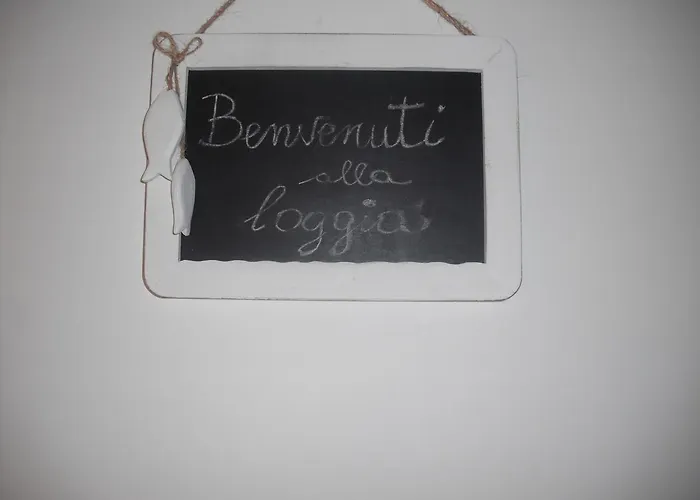 Benvenuti
alla
loggia